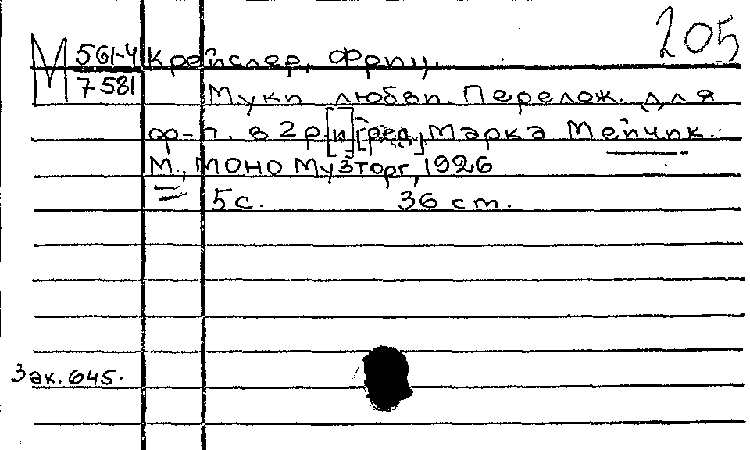 205
М 561-4 Крейслер, Фриц.
7581
Муки любви. Перелож. для
ф-п. в 2 р. [и] [ред.] Марка Мейчик.
М., Моно Музторг, 1926
5 с. 36 ст.
Зак. 645.